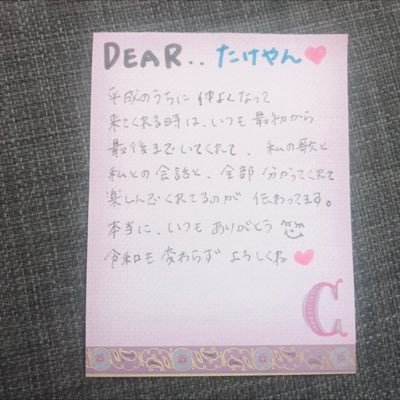 DEAR.. たけやん
平成のうちに仲よくなって
来てくれる時は、いつも最初から
最後までいてくれて、私の歌と
私との会話と、全部分かってくれて
楽しんでくれてるのが伝わってます。
本当に、いつもありがとう
令和も変わらずよろしくね
C